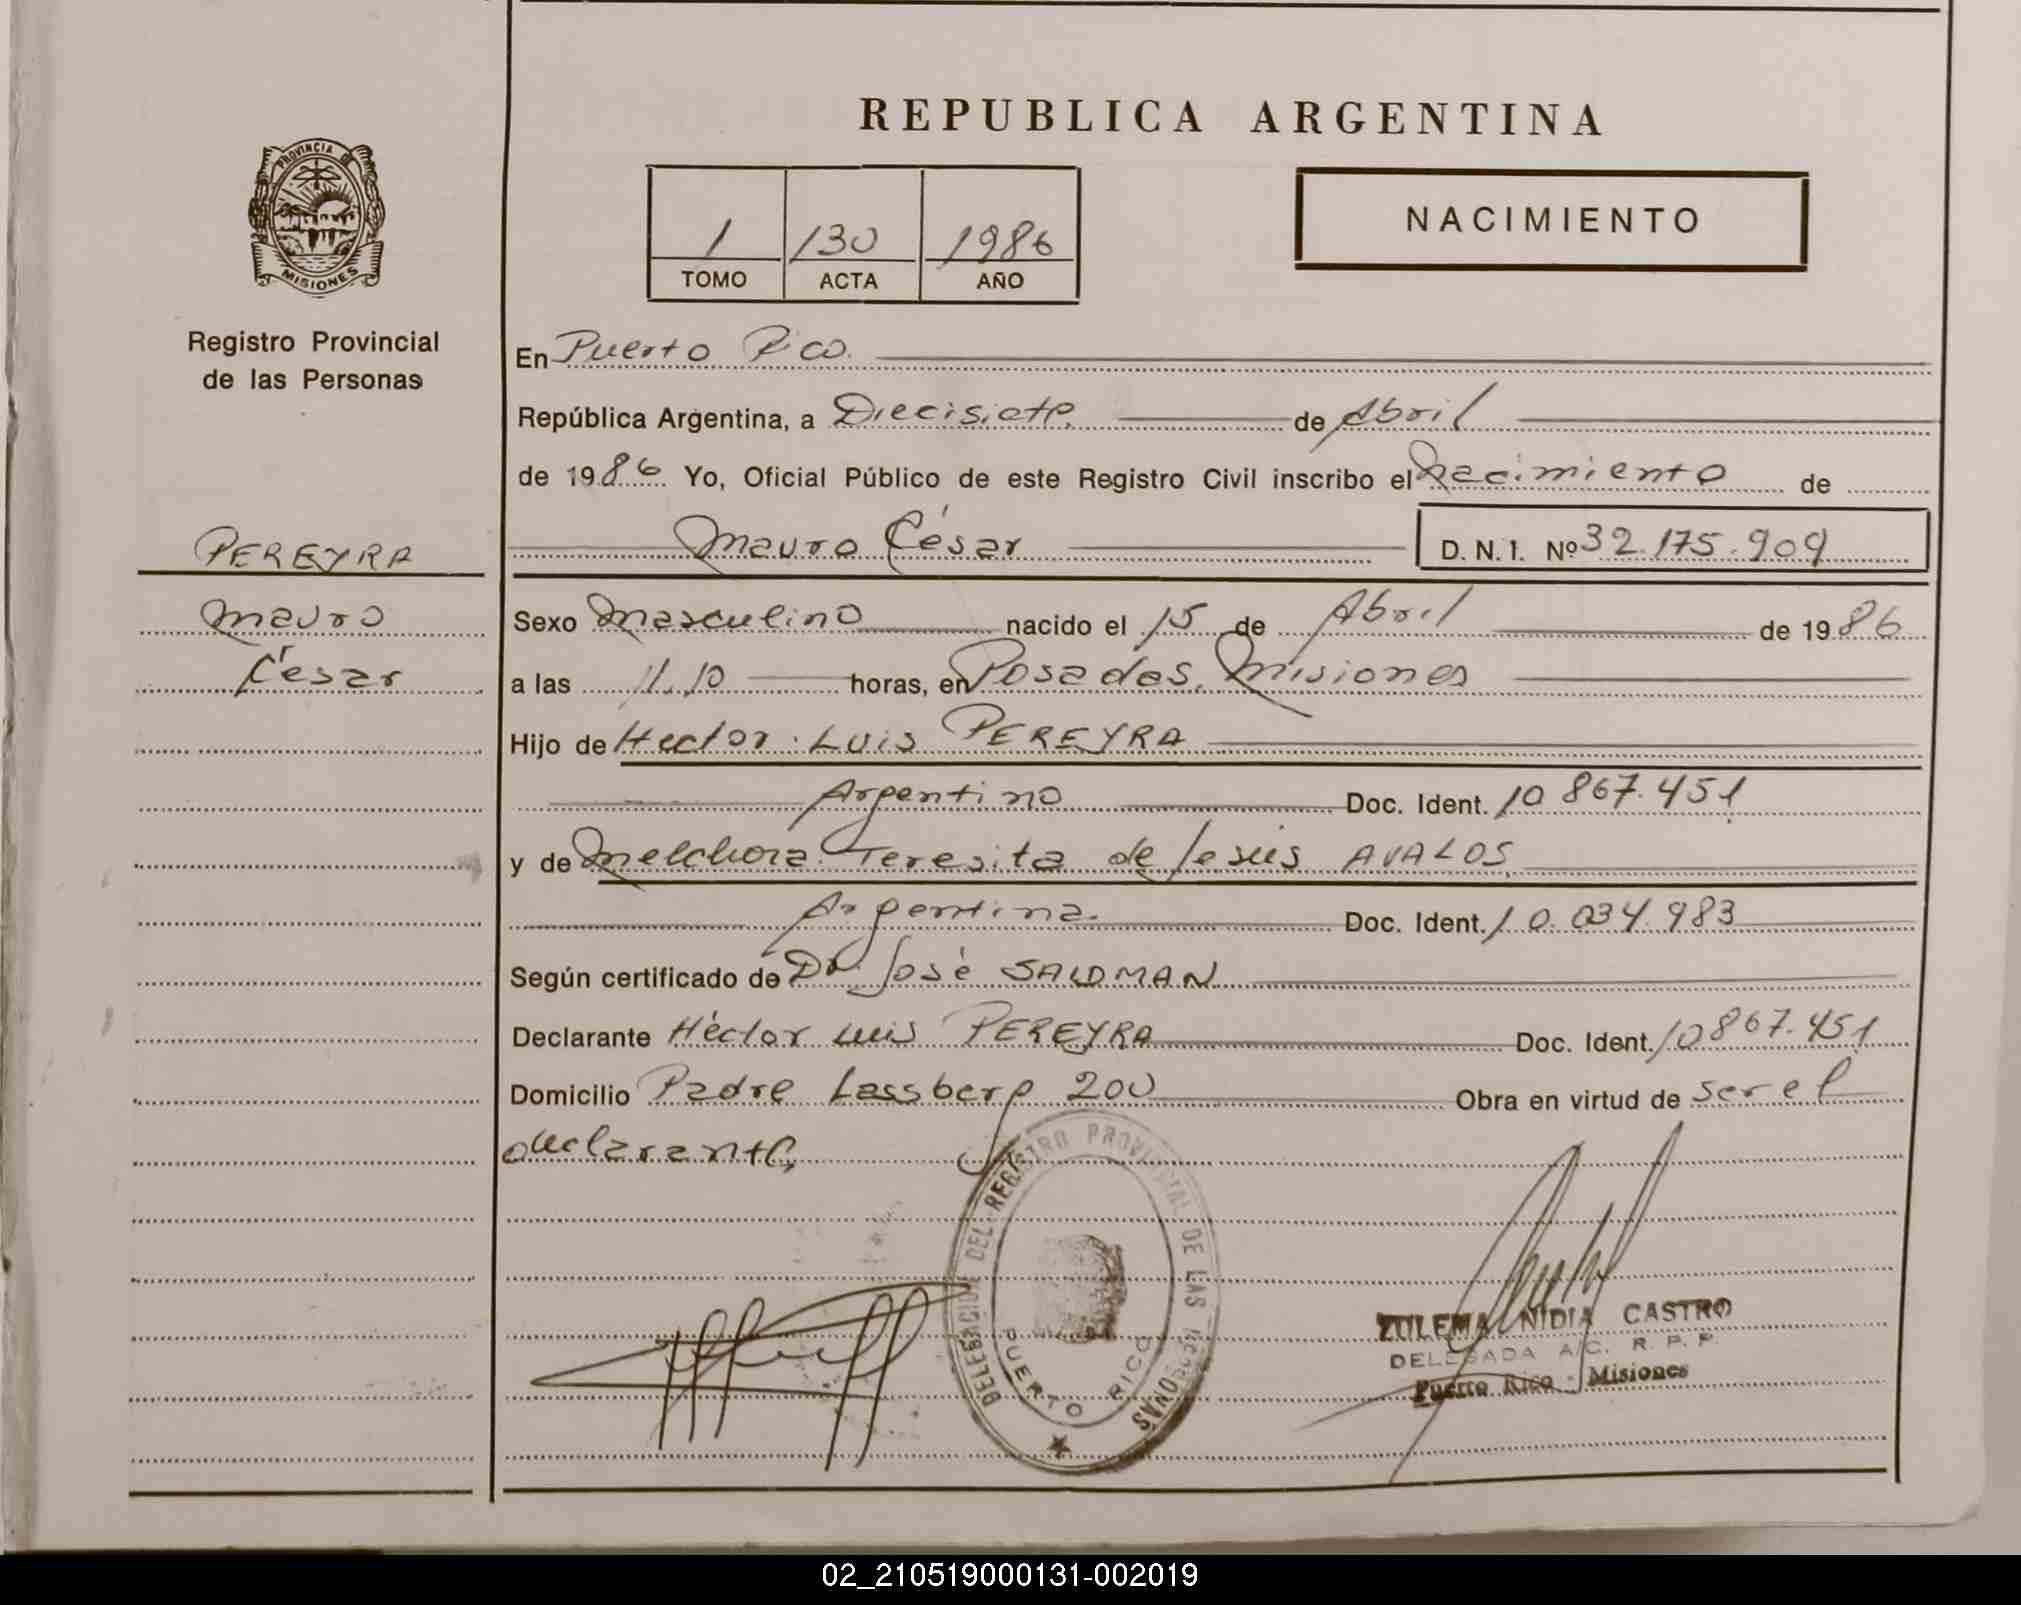 REPUBLICA ARGENTINA
PROVINCIA DE
MISIONES
Registro Provincial
de las Personas
1 130 1986
TOMO ACTA AÑO
NACIMIENTO
En Puerto Rico.
República Argentina, a Diecisiete de Abril
de 1986 Yo, Oficial Público de este Registro Civil inscribo el Nacimiento de
PEREYRA
Mauro César D. N. I. Nº 32.175.909
Mauro
César
Sexo Masculino nacido el 15 de Abril de 1986
a las 11.10 horas, en Posadas, Misiones
Hijo de Hector Luis PEREYRA
Argentino Doc. Ident. 10 867.451
y de Melchora Teresita de Jesús AVALOS
Argentina Doc. Ident. 10.034.983
Según certificado de Dr. José SALDMAN
Declarante Héctor Luis PEREYRA Doc. Ident. 10867.451
Domicilio Padre Lassberg 200 Obra en virtud de ser el
declarante
DELEGACION DEL REGISTRO PROVINCIAL DE LAS PERSONAS
PUERTO RICO
ZULEMA NIDIA CASTRO
DELEGADA A/C. R. P. P.
Puerto Rico - Misiones
02_210519000131-002019